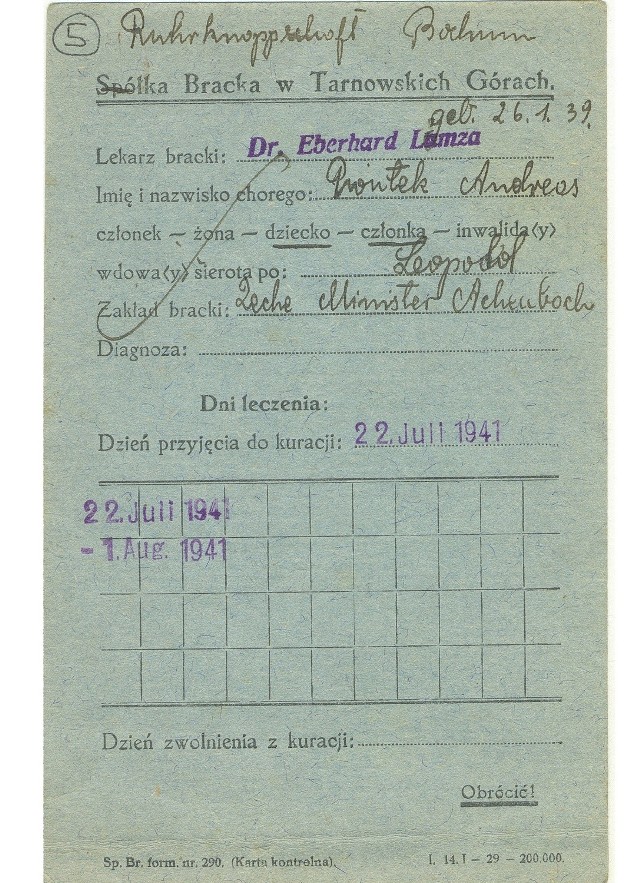 5 Ruhrknappschaft Bochum
Spółka Bracka w Tarnowskich Górach.
geb. 26.1.39.
Lekarz bracki: Dr. Eberhard Lamza
Imię i nazwisko chorego: Piontek Andreas
członek — żona — dziecko — członka — inwalida(y)
wdowa(y) sierota po: Leopold
Zakład bracki: Zeche Minister Achenbach
Diagnoza:
Dni leczenia:
Dzień przyjęcia do kuracji: 22. Juli 1941
22. Juli 1941
- 1. Aug. 1941
Dzień zwolnienia z kuracji:
Obrócić!
Sp. Br. form. nr. 290. (Karta kontrolna). I. 14. I — 29 — 200.000.